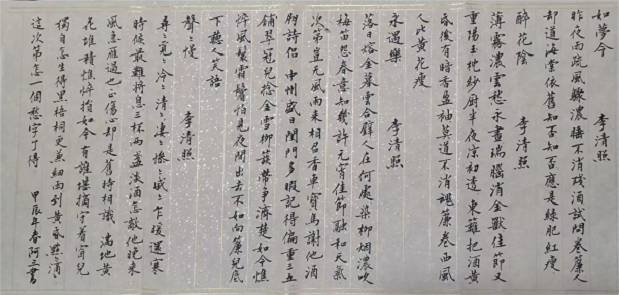 如夢令　李清照
昨夜雨疏風驟濃睡不消殘酒試問卷簾人
却道海棠依舊知否知否應是綠肥紅瘦
醉花陰　李清照
薄霧濃雲愁永晝瑞腦消金獸佳節又
重陽玉枕紗廚半夜涼初透東籬把酒黃
昏後有暗香盈袖莫道不消魂簾卷西風
人比黃花瘦
永遇樂　李清照
落日熔金暮雲合璧人在何處染柳烟濃吹
梅笛怨春意知幾許元宵佳節融和天氣
次第豈無風雨來相召香車寶馬謝他酒
朋詩侶中州盛日閨門多暇記得偏重三五
鋪翠冠兒捻金雪柳簇帶爭濟楚如今憔
悴風鬟霜鬢怕見夜間出去不如向簾兒底
下聽人笑語
聲聲慢　李清照
尋々覓々冷々清々凄々慘々戚々乍暖還寒
時候最難將息三杯兩盞淡酒怎敵他晚來
風急雁過也正傷心却是舊時相識滿地黃
花堆積憔悴損如今有誰堪摘守着窗兒
獨自怎生得黑梧桐更兼細雨到黃昏點滴
這次第怎一個愁字了得　甲辰年春阿三書